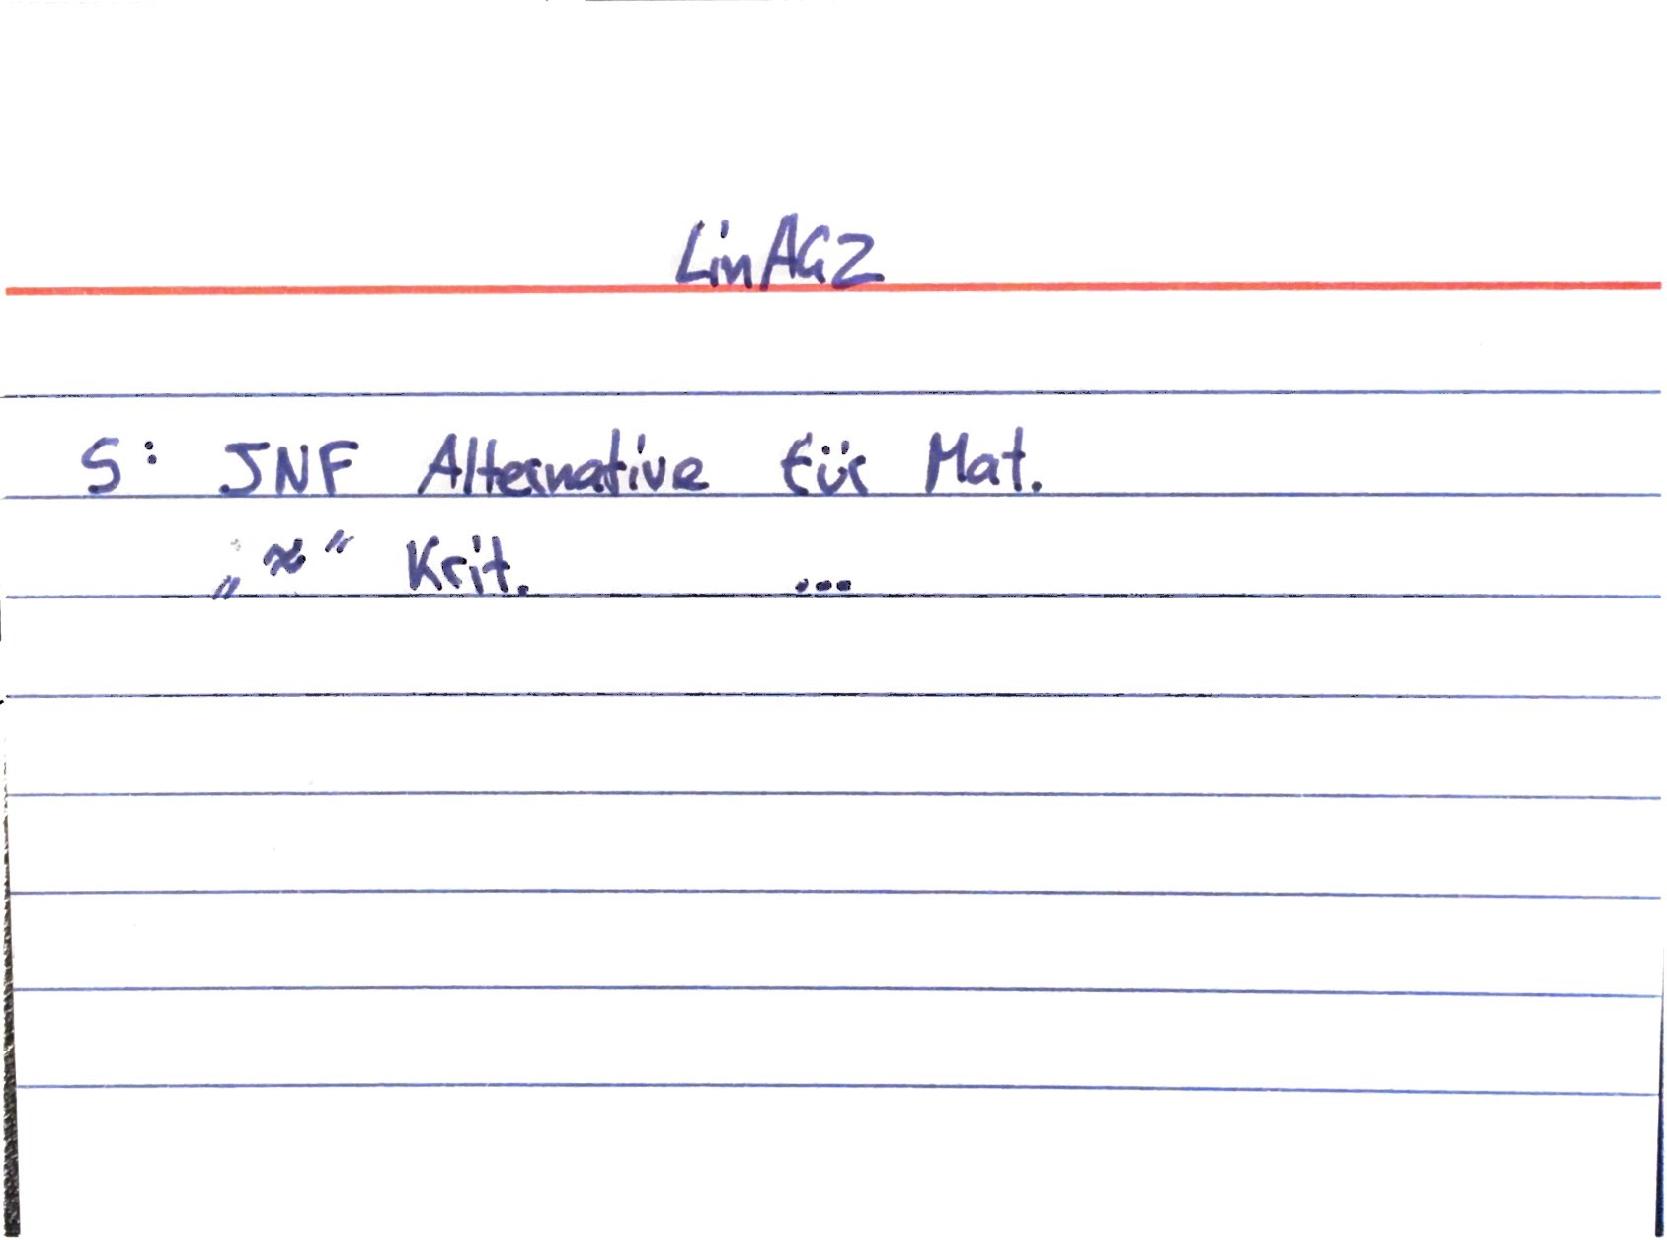 LinAG2
S: JNF Alternative für Mat.
„≈“ Krit. ...